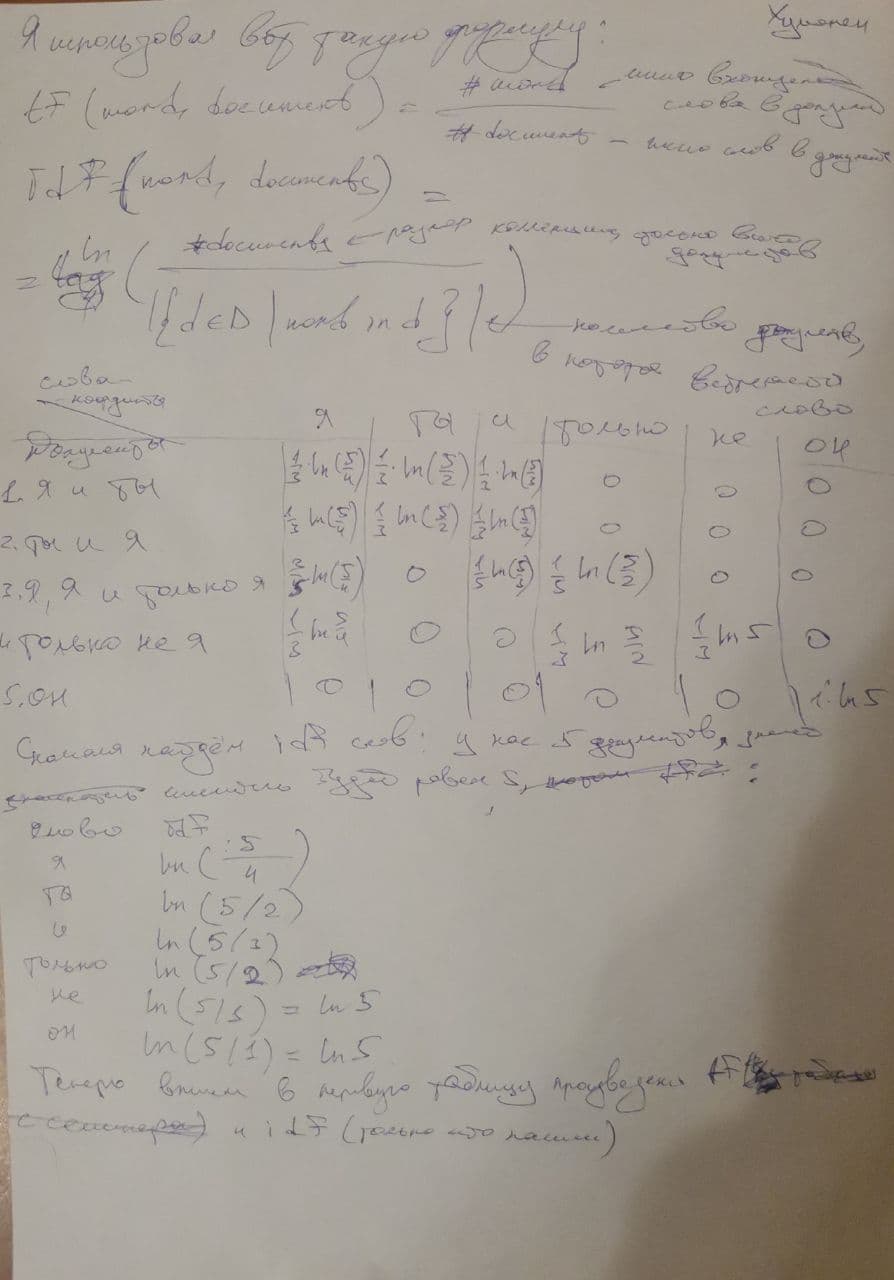 Я использовал вот такую формулу:
tF (word, document) = # word / # document
← число вхождений слова в документ
– число слов в документе
IdF (word, documents) =
= ln ( # documents / |{d ∈ D | word in d}| )
← размер коллекции, только всего документов
← количество документов, в которых встречается слово
слова-координаты
Документы
я | ты | и | только | не | он
1. Я и ты | 1/3·ln(5/4) | 1/3·ln(5/2) | 1/3·ln(5/3) | 0 | 0 | 0
2. ты и я | 1/3 ln(5/4) | 1/3 ln(5/2) | 1/3 ln(5/3) | 0 | 0 | 0
3. Я, Я и только я | 3/5 ln(5/4) | 0 | 1/5 ln(5/3) | 1/5 ln(5/2) | 0 | 0
4. только не я | 1/3 ln 5/4 | 0 | 0 | 1/3 ln 5/2 | 1/3 ln 5 | 0
5. он | 0 | 0 | 0 | 0 | 0 | 1·ln 5
Сначала найдём idF слов: у нас 5 документов, значит
числитель будет равен 5, :
слово IdF
я ln(5/4)
ты ln(5/2)
и ln(5/3)
только ln(5/2)
не ln(5/1) = ln 5
он ln(5/1) = ln 5
Теперь впишем в первую таблицу произведения tF
и idF (только что нашли)